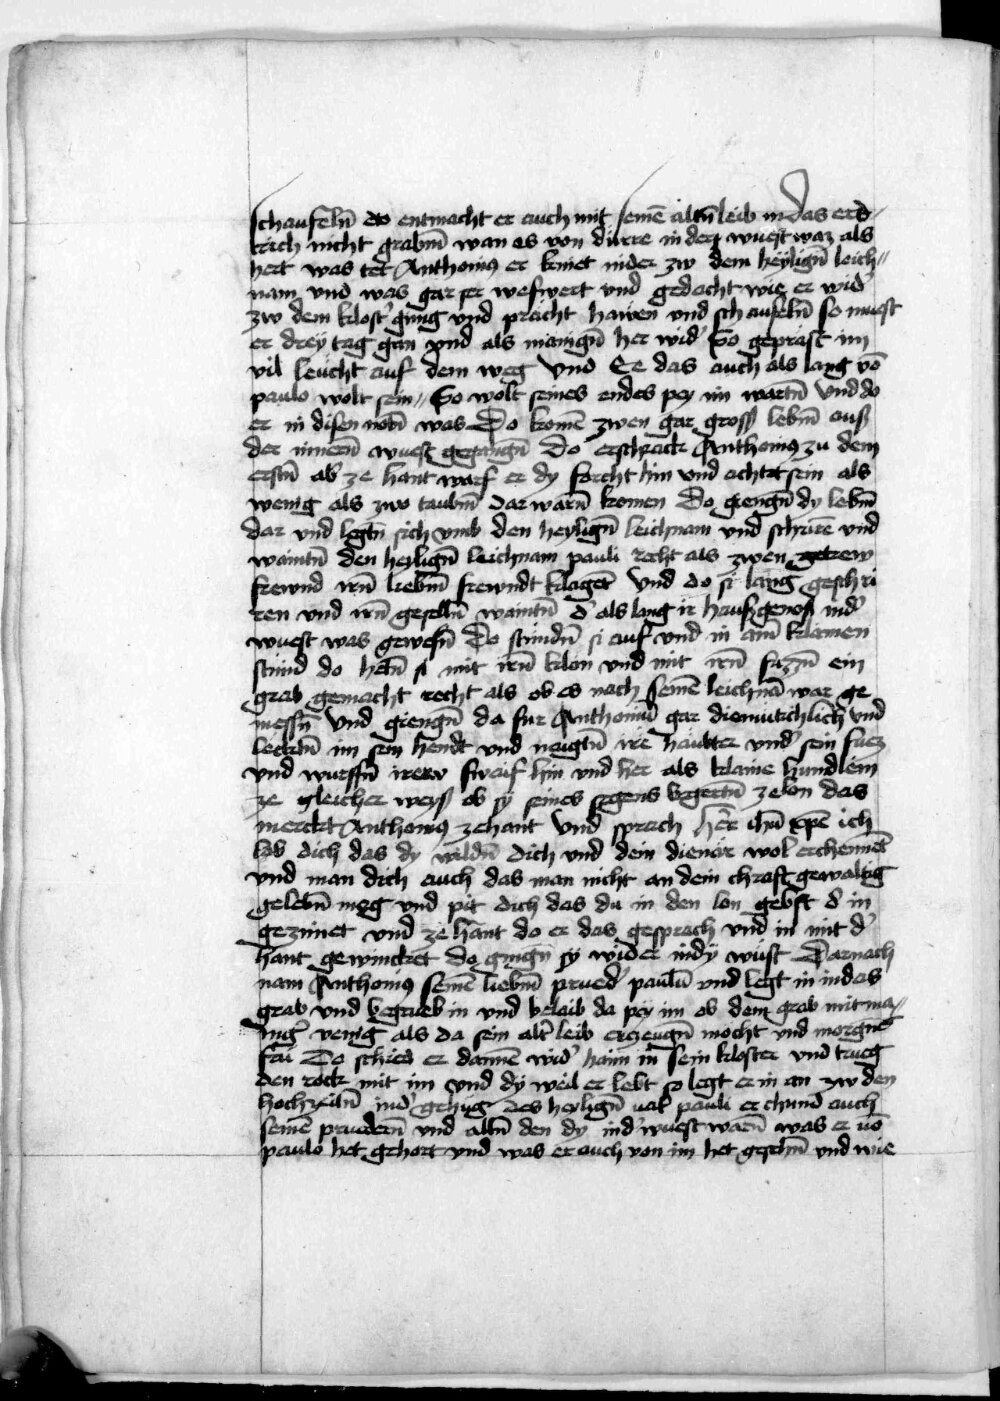 schaufeln̄ do entmacht er auch mit seinē altn̄ leib in das erd
trich nicht grabm̄ wan es von dürre in der wuest waz als
hert was tet Anthonius er kniet nider zw dem heylign̄ leich
nam vnd was gar ser beswert vnd gedacht wie er wid'
zw dem klost' gieng vnd pracht hawen vnd schaufeln̄ so muest
er drey tag gan vnd als manign̄ her wid' So geprast im
vil leücht auf dem weg Vnd Ee das auch als lang vō
paulo wolt sein So wolt seines endes pey im wartn̄ Vnd do
er in disen notn̄ was Do komen zwen gar gross lebm̄ auß
der innern̄ wuest gegangn̄ Do erschrack Anthonius zu dem
erstn̄ ab ze hant warf er dy forcht hin vnd achtet sein als
wenig als zwo taubm̄ dar warn̄ komen Do giengn̄ dy lebm̄
dar vnd legtn̄ sich vmb den heylign̄ leichnam vnd schrirē vnd
waintn̄ den heylign̄ leichnam pauli recht als zwen getrew
frewnd irn̄ liebm̄ frewndt klaget Vnd do si lang geschri
ren vnd irn̄ geselln̄ waintn̄ d' als lang ir haußgenoß in d'
wuest was gewesn̄ Do stündn̄ si auf vnd in ainē klainen
stund do hetn̄ si mit irn̄ klon vnd mit irn̄ fuzzn̄ ein
grab gemacht recht als ob es nach seinē leichnā war ge
messn̄ Vnd giengn̄ da fur Anthoniū gar diemütichlich vnd
lecktn̄ im sein hendt vnd naygtn̄ ire häubter vnd' sein fuez
vnd wurffn̄ irew sweif hin vnd her als klaine hundlein
ze gleicher weyß ob sy seines segens begertn̄ ze lon das
merckt Anthonius zehant Vnd sprach her ihū xpē ich
lob dich das dy wildn̄ dich vnd dein diener wol erchennēt
vnd man dich auch das man nicht an dein chraft gewaltig
gelebm̄ mag vnd pit dich das du in den lon gebst d' in
gezimet vnd ze hant do er das gesprach vnd in mit d'
hant gewincket do giengn̄ sy wider in dy wüst Darnach
nam Anthonius seinē liebm̄ prued' paulū vnd legt in in das
grab vnd begrueb in vnd belaib da pey im ob dem grab mit ma
nig' venig als da sein alt' leib erzeugn̄ mocht vnd morgnē
frü Do schied er dannē wid' haim in sein kloster vnd trueg
den rock mit im vnd dy weil er lebt so legt er in an zw den
hochzeitn̄ in d' gehüg des heylign̄ vat' pauli er chund auch
seinē pruedern̄ vnd alln̄ den dy in d' wuest warn̄ was er vō
paulo het gehort vnd was er auch von im het gesehn̄ vnd wie